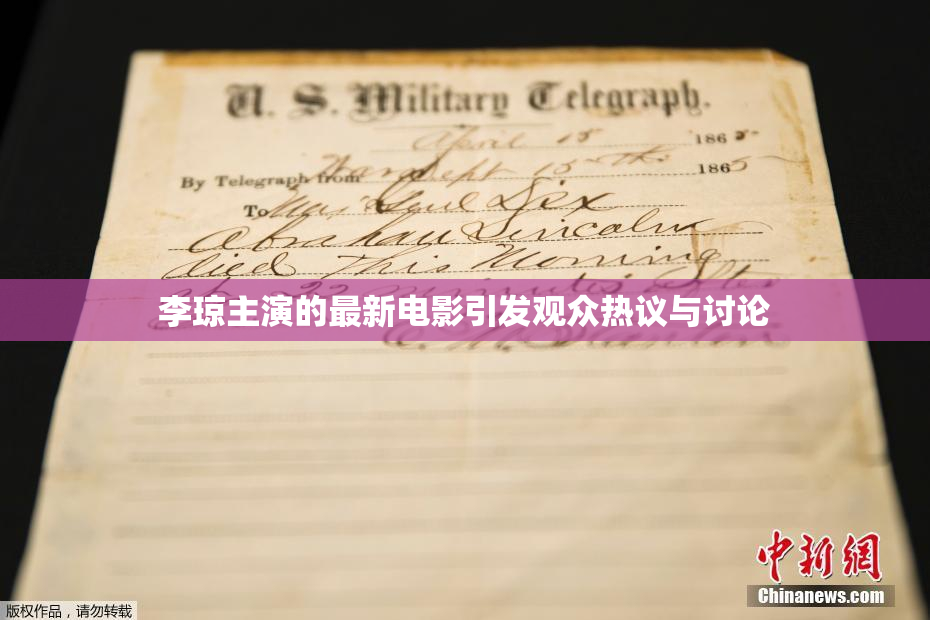 U. S. Military Telegraph.
April 15 1865
By Telegraph from War Dept 15th 1865
To Maj Genl Dix
Abraham Lincoln
died This Morning
at 22 minutes after
李琼主演的最新电影引发观众热议与讨论
E. M. Stanton
中新网
Chinanews.com
版权作品，请勿转载